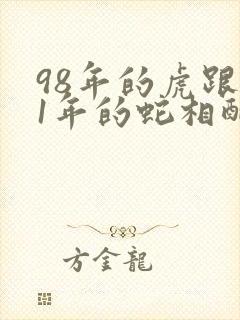 98年的虎跟
1年的蛇相配
方金龍